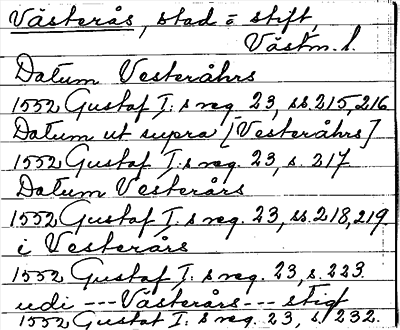 Västerås, stad = stift,
Västm. l.
Datum Vesteråhrs
1552 Gustaf I: s reg. 23, ss. 215, 216
Datum ut supra [Vesteråhrs]
1552 Gustaf I: s reg. 23, s. 217
Datum Vesterårs
1552 Gustaf I: s reg. 23, ss. 218, 219
i Vesterårs
1552 Gustaf I: s reg. 23, s. 223.
udi --- Västerårs --- stigt
1552 Gustaf I: s reg. 23, s. 232.